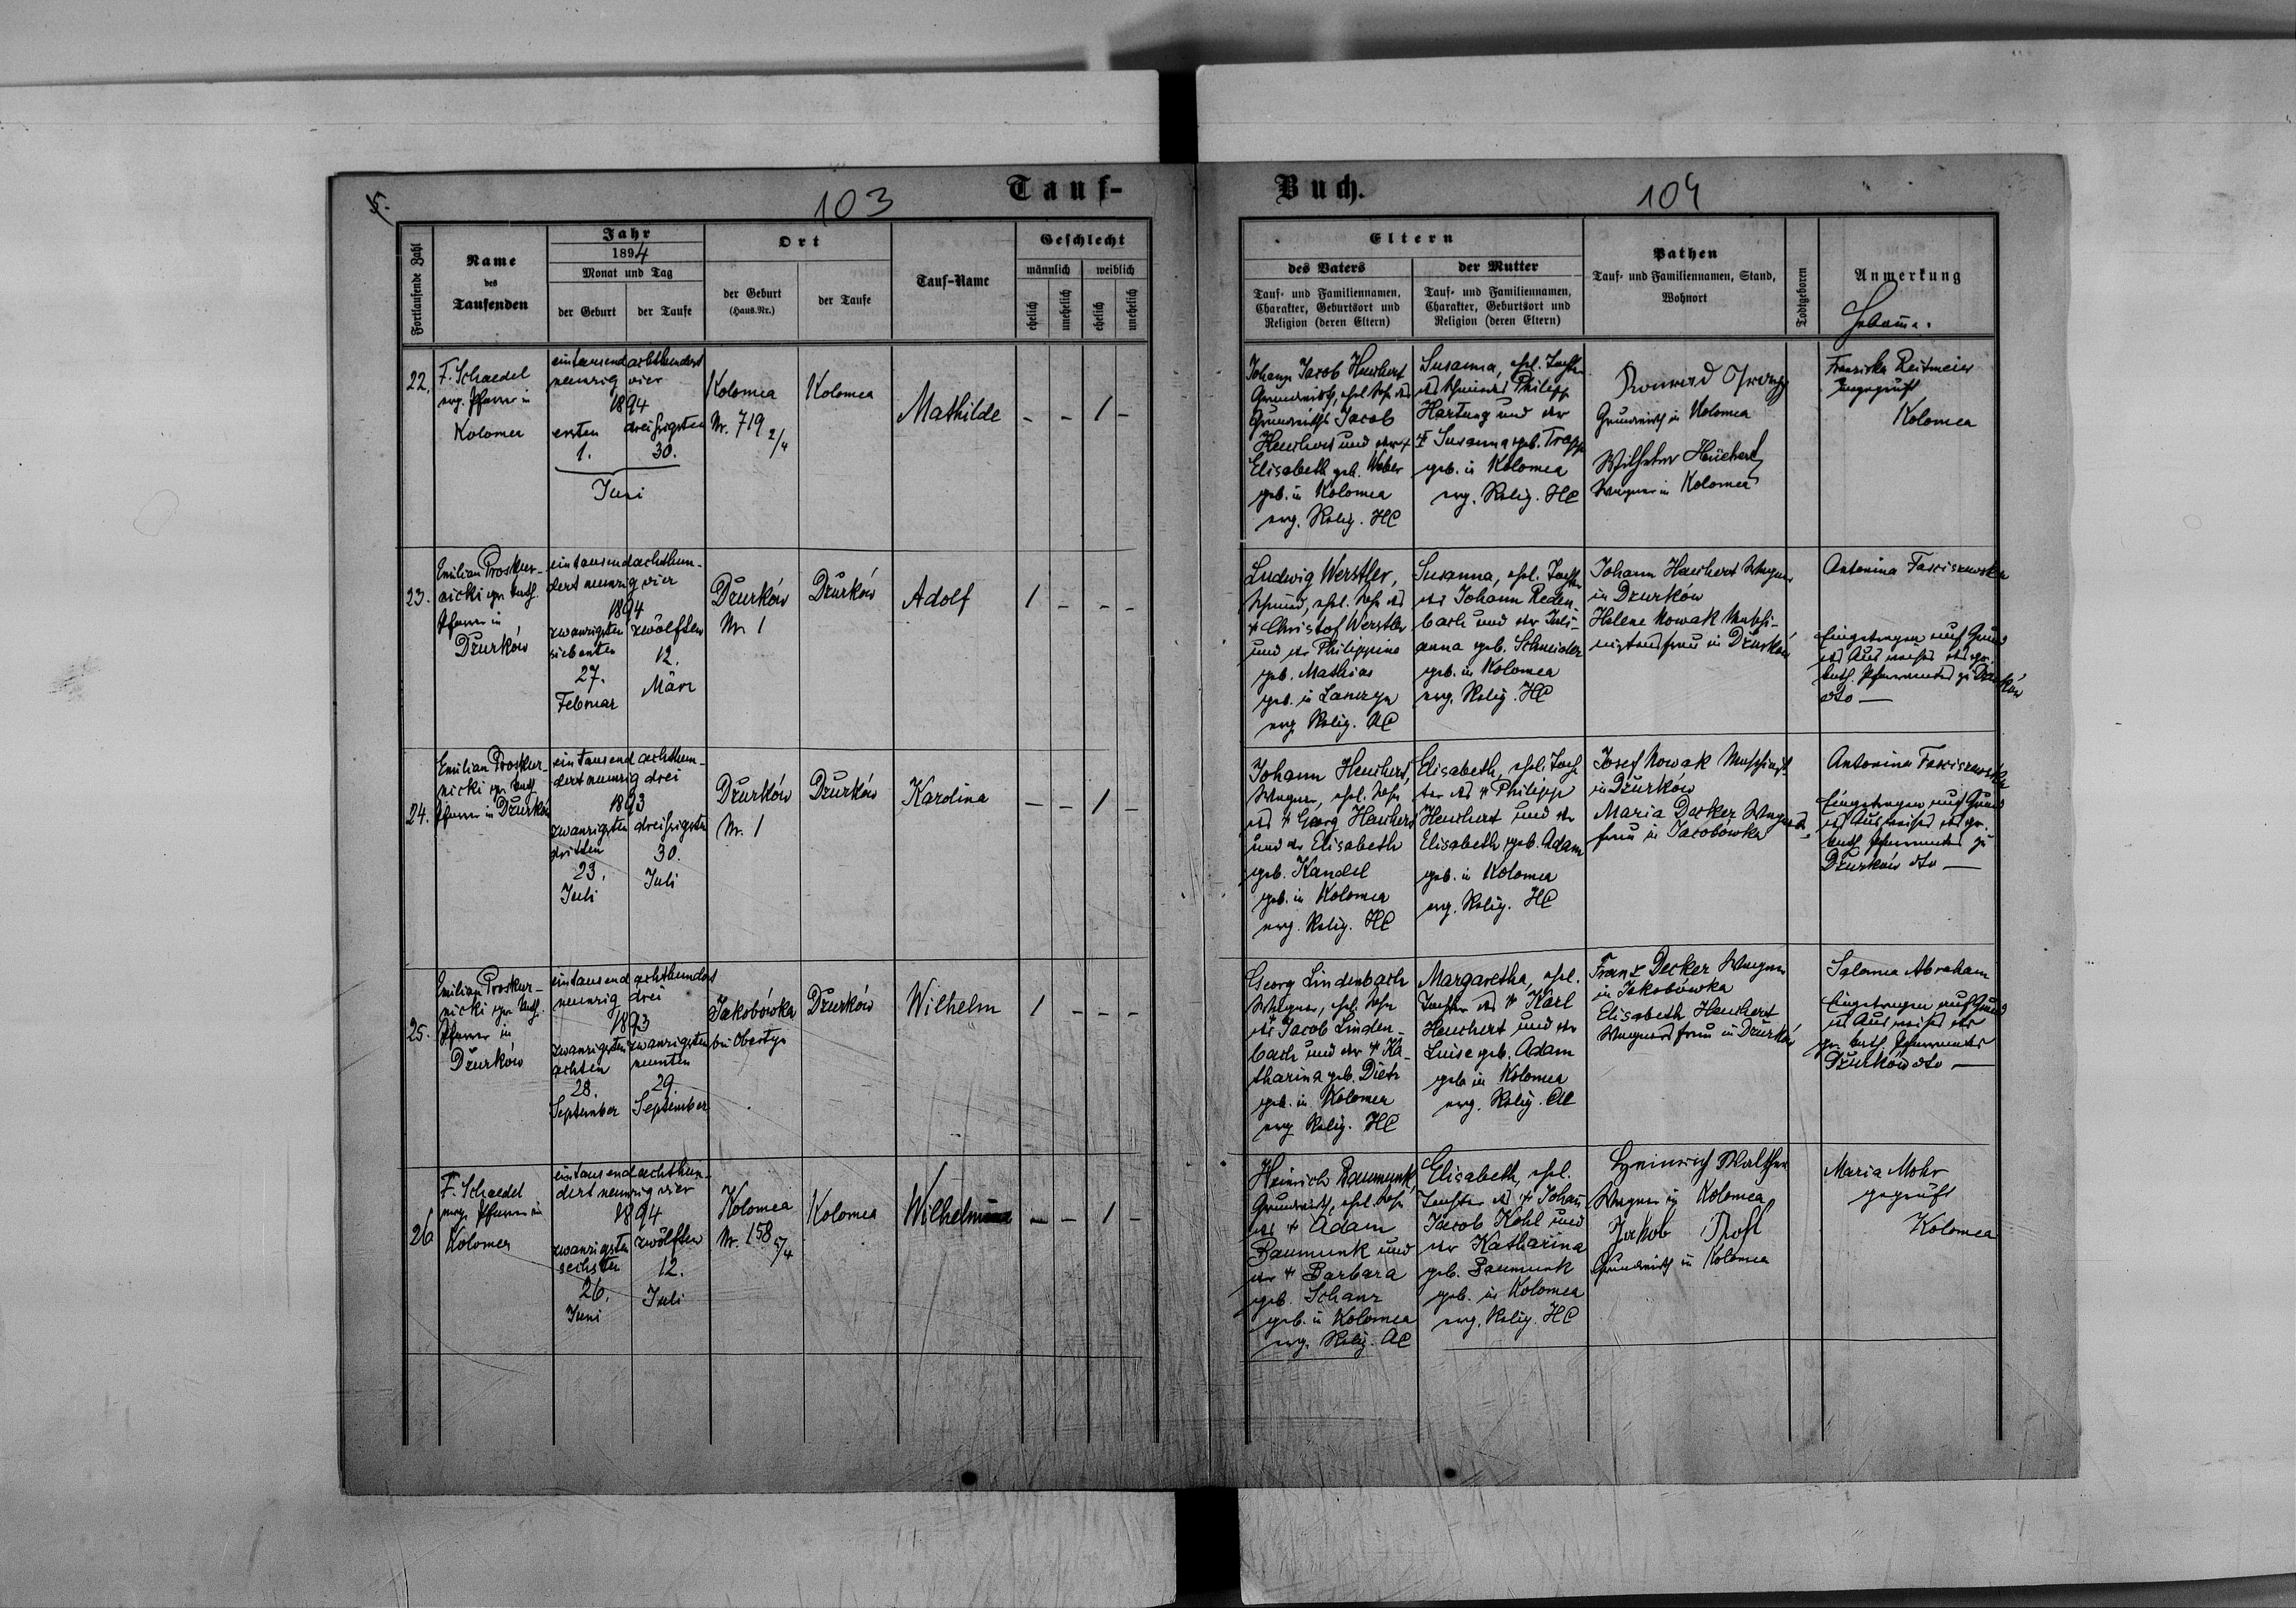 5.
103
Tauf-
Buch.
104
Fortlaufende Zahl
Name
des
Taufenden
Jahr
1894
Monat und Tag
der Geburt
der Taufe
Ort
der Geburt
(Haus-Nr.)
der Taufe
Tauf-Name
Geschlecht
männlich
weiblich
ehelich
unehelich
ehelich
unehelich
Eltern
des Vaters
Tauf- und Familiennamen,
Charakter, Geburtsort und
Religion (deren Eltern)
der Mutter
Tauf- und Familiennamen,
Charakter, Geburtsort und
Religion (deren Eltern)
Pathen
Tauf- und Familiennamen, Stand,
Wohnort
Todtgeboren
Anmerkung
Hebamme.
22.
F. Schaedel
evg. Pfarrer in
Kolomea
eintausend achthundert
neunzig vier
1894
ersten dreißigsten
1. 30.
Juni
Kolomea
Nr. 719 2/4
Kolomea
Mathilde
- - 1 -
Johann Jacob Heuchert
Grundwirth, ehel. Sohn des
Grundwirths Jacob
Heuchert und der +
Elisabeth geb. Weber
geb. in Kolomea
evg. Relig. HC
Susanna, ehel. Tochter
des Schmieds Philipp
Hartung und der
+ Susanna geb. Trapp
geb. in Kolomea
evg. Relig. HC
Konrad
Grundwirth in Kolomea
Wilhelm Heuchert
Wagner in Kolomea
Franziska Reitmeier
ungeprüft
Kolomea
23.
Emilian Proskur-
nicki gr. kath.
Pfarrer in
Dżurków
eintausendachthun-
dert neunzig vier
1894
zwanzigsten zwölften
siebenten
27. 12.
Februar März
Dżurków
Nr. 1
Dżurków
Adolf
1 - - -
Ludwig Werstler,
Schmied, ehel. Sohn des
+ Christof Werstler
und der Philippine
geb. Mathias
geb. in Lanczyn
evg. Relig. AC
Susanna, ehel. Tochter
des Johann Reden-
bach und der Juli-
anna geb. Schneider
geb. in Kolomea
evg. Relig. HC
Johann Heuchert Wagner
in Dżurków
Helene Nowak Maschi-
nistensfrau in Dżurków
Antonina Fasciszewska
Eingetragen auf Grund
des Ausweises des gr.
kath. Pfarramtes zu Dżurków
dto —
24.
Emilian Proskur-
nicki gr. kath.
Pfarrer in Dżurków
eintausend achthun-
dert neunzig drei
1893
zwanzigsten dreißigsten
dritten
23. 30.
Juli Juli
Dżurków
Nr. 1
Dżurków
Karolina
- - 1 -
Johann Heuchert,
Wagner, ehel. Sohn
des + Georg Heuchert
und der Elisabeth
geb. Kandel
geb. in Kolomea
evg. Relig. HC
Elisabeth, ehel. Toch-
ter des + Philipp
Heuchert und der
Elisabeth geb. Adam
geb. in Kolomea
evg. Relig. HC
Josef Nowak Maschinist
in Dżurków
Maria Decker Wagners-
frau in Jacobówka
Antonina Fasciszewska
Eingetragen auf Grund
des Ausweises des gr.
kath. Pfarramtes zu
Dżurków dto —
25.
Emilian Proskur-
nicki gr. kath.
Pfarrer in
Dżurków
eintausend achthundert
neunzig drei
1893
zwanzigsten zwanzigsten
achten neunten
28. 29.
September September
Jakobówka
bei Obertyn
Dżurków
Wilhelm
1 - - -
Georg Lindenbach
Wagner, ehel. Sohn
des Jacob Linden-
bach und der + Ka-
tharina geb. Dietz
geb. in Kolomea
evg. Relig. HC
Margaretha, ehel.
Tochter des + Karl
Heuchert und der
Luise geb. Adam
geb. in Kolomea
evg. Relig. AC
Franz Decker Wagner
in Jakobówka
Elisabeth Heuchert
Wagnersfrau in Dżurków
Salomea Abraham
Eingetragen auf Grund
des Ausweises des
gr. kath. Pfarramtes
Dżurków dto —
26
F. Schaedel
evg. Pfarrer in
Kolomea
eintausendachthun-
dert neunzig vier
1894
zwanzigsten zwölften
sechsten
26. 12.
Juni Juli
Kolomea
Nr. 158 5/4
Kolomea
Wilhelmina
- - 1 -
Heinrich Baumunk,
Grundwirth, ehel. Sohn
des + Adam
Baumunk und
der + Barbara
geb. Schanz
geb. in Kolomea
evg. Relig. AC
Elisabeth, ehel.
Tochter des + Johann
Jacob Kohl und
der Katharina
geb. Baumunk
geb. in Kolomea
evg. Relig. HC
Heinrich Walther
Wagner in Kolomea
Jakob
Grundwirth in Kolomea
Maria Mohr
geprüft
Kolomea